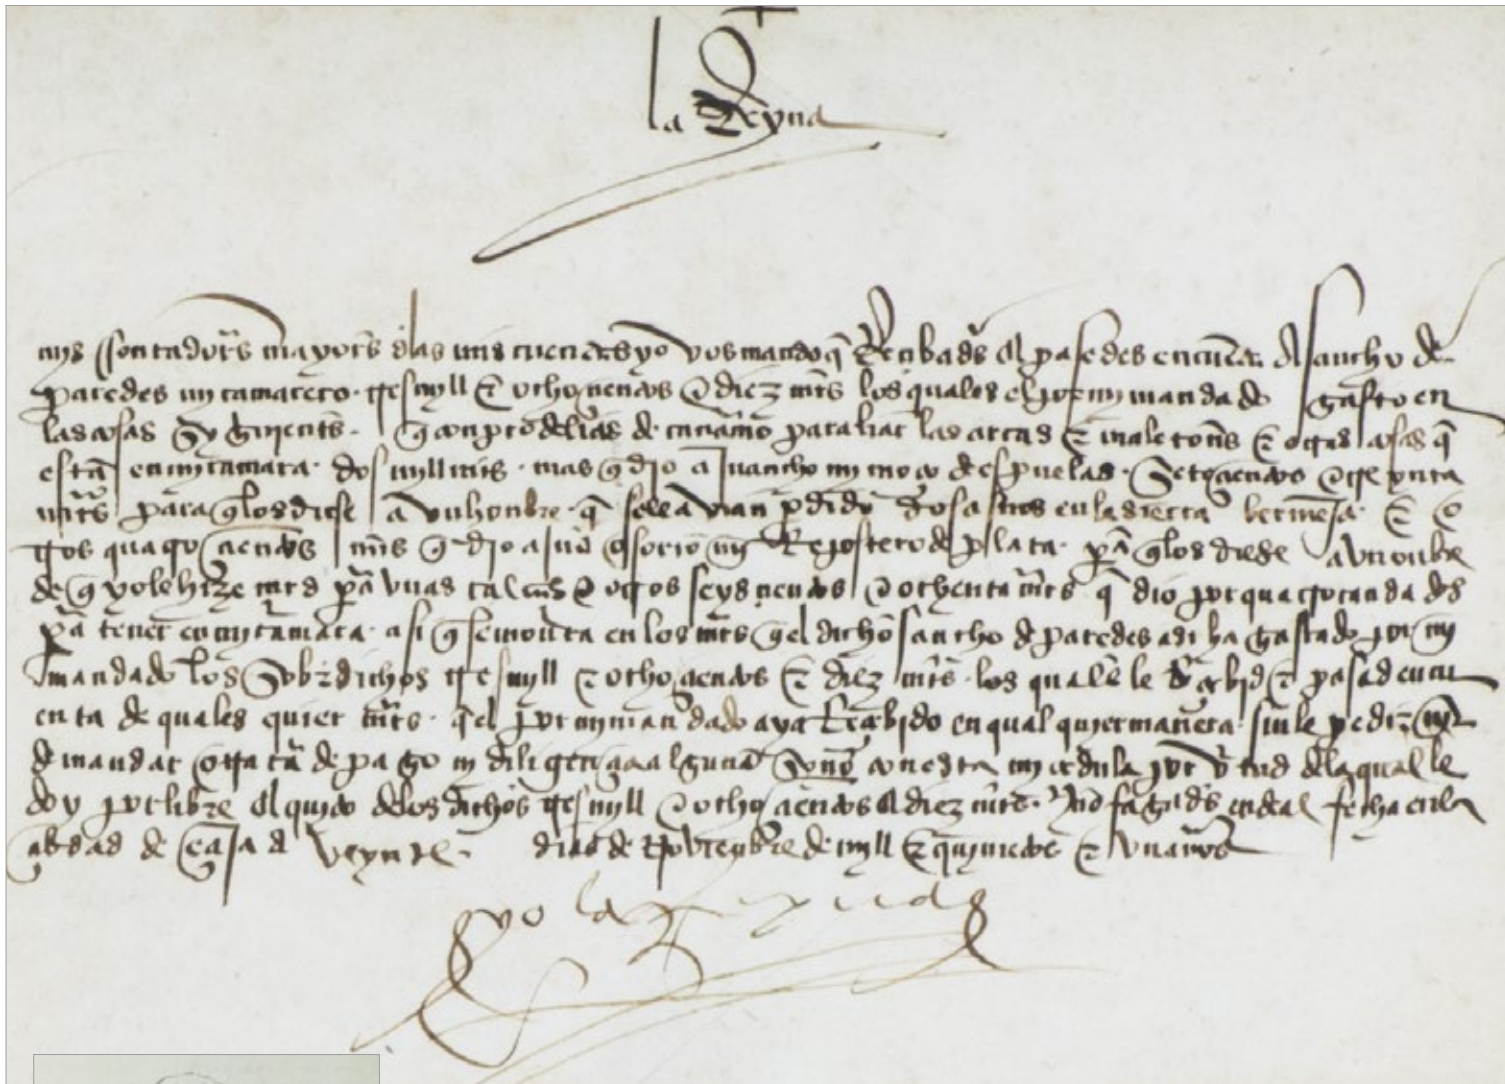 la Reyna
mys contadores mayores de las mis cuentas yo vos mando que Recibades e pasedes en cuenta a sancho de
paredes my camarero tres myll e ochoçientos e diez mrs los quales el por my mandado gasto en
las cosas syguientes que conpro de lias de cañamo para liar las arcas e maletones e otras cosas que
estan en my camara dos myll mrs mas que dio a Juancho my moço de espuelas seteçientos e treynta
mrs para que los diese a un honbre que se le avian perdido asnos en la sierra bermeja e o
tros quatroçientos mrs que dio a osorio my Repostero de plata para que los diese a un onbre
de que yo le hize mrd para unas e otros seysçientos e ochenta mrs que dio por quatro candados
para tener en my camara asi que se monta en los mrs que el dicho sancho de paredes asi ha gastado por my
mandado los sobre dichos tres myll e ochoçientos e diez mrs los quales le Reçebid e pasad en cu
enta de quales quier mrs que el por my mandado aya Reçebido en qual quier manera sin le pedir ny
demandar otra carta de pago ny diligençia alguna syno con esta my çedula por virtud de la qual le
doy por libre e quito de los dichos tres myll e ochoçientos e diez mrs y no fagades ende al fecha en la
çibdad de eçija a veynte dias de novienbre de myll e quinientos e un años
yo la Reyna